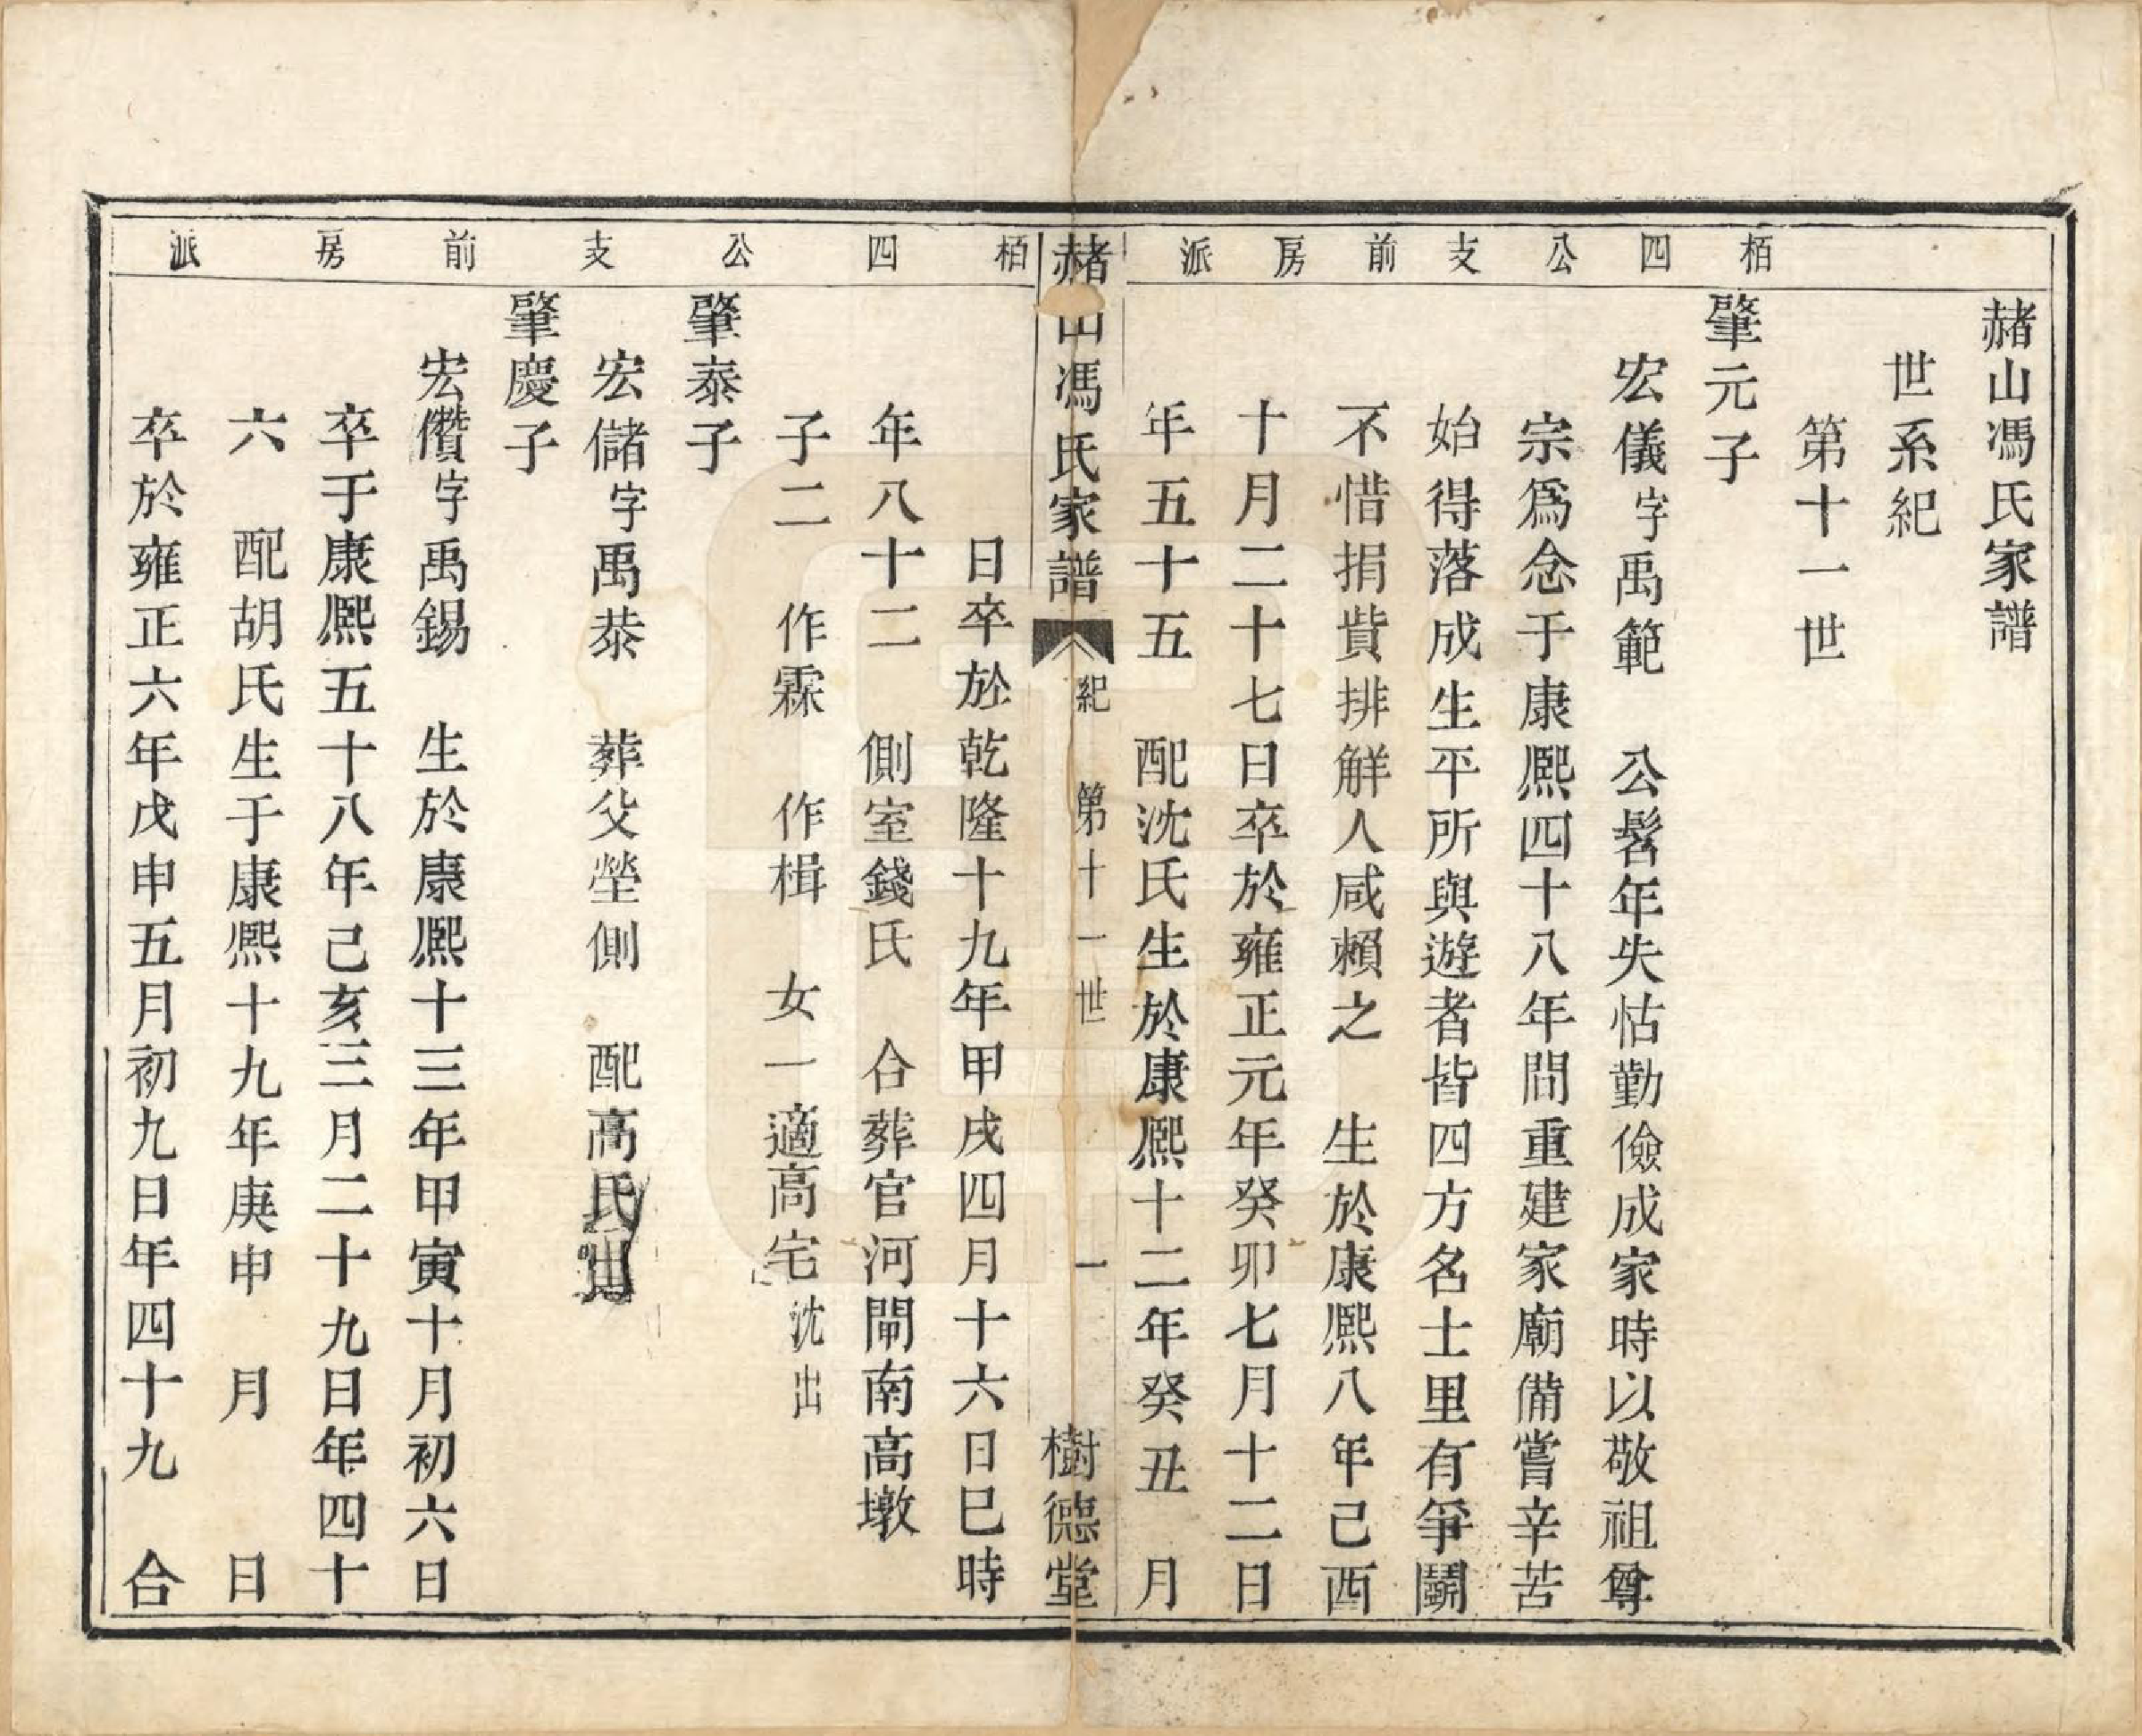 栢四公支前房派
赭山馮氏家譜
世系紀
第十一世
肇元子
宏儀字禹範　公髫年失怙勤儉成家時以敬祖尊
宗爲念于康熙四十八年間重建家廟備嘗辛苦
始得落成生平所與遊者皆四方名士里有爭鬭
不惜捐貲排解人咸賴之　生於康熙八年己酉
十月二十七日卒於雍正元年癸卯七月十二日
年五十五　配沈氏生於康熙十二年癸丑　月
赭山馮氏家譜　紀　第十一世　一　樹德堂
栢四公支前房派
日卒於乾隆十九年甲戌四月十六日巳時
年八十二　側室錢氏　合葬官河閘南高墩
子二　作霖　作楫　女一適高宅沈出
肇泰子
宏儲字禹恭　葬父塋側　配高氏
肇慶子
宏儹字禹錫　生於康熙十三年甲寅十月初六日
卒于康熙五十八年己亥三月二十九日年四十
六　配胡氏生于康熙十九年庚申　月　日
卒於雍正六年戊申五月初九日年四十九　合